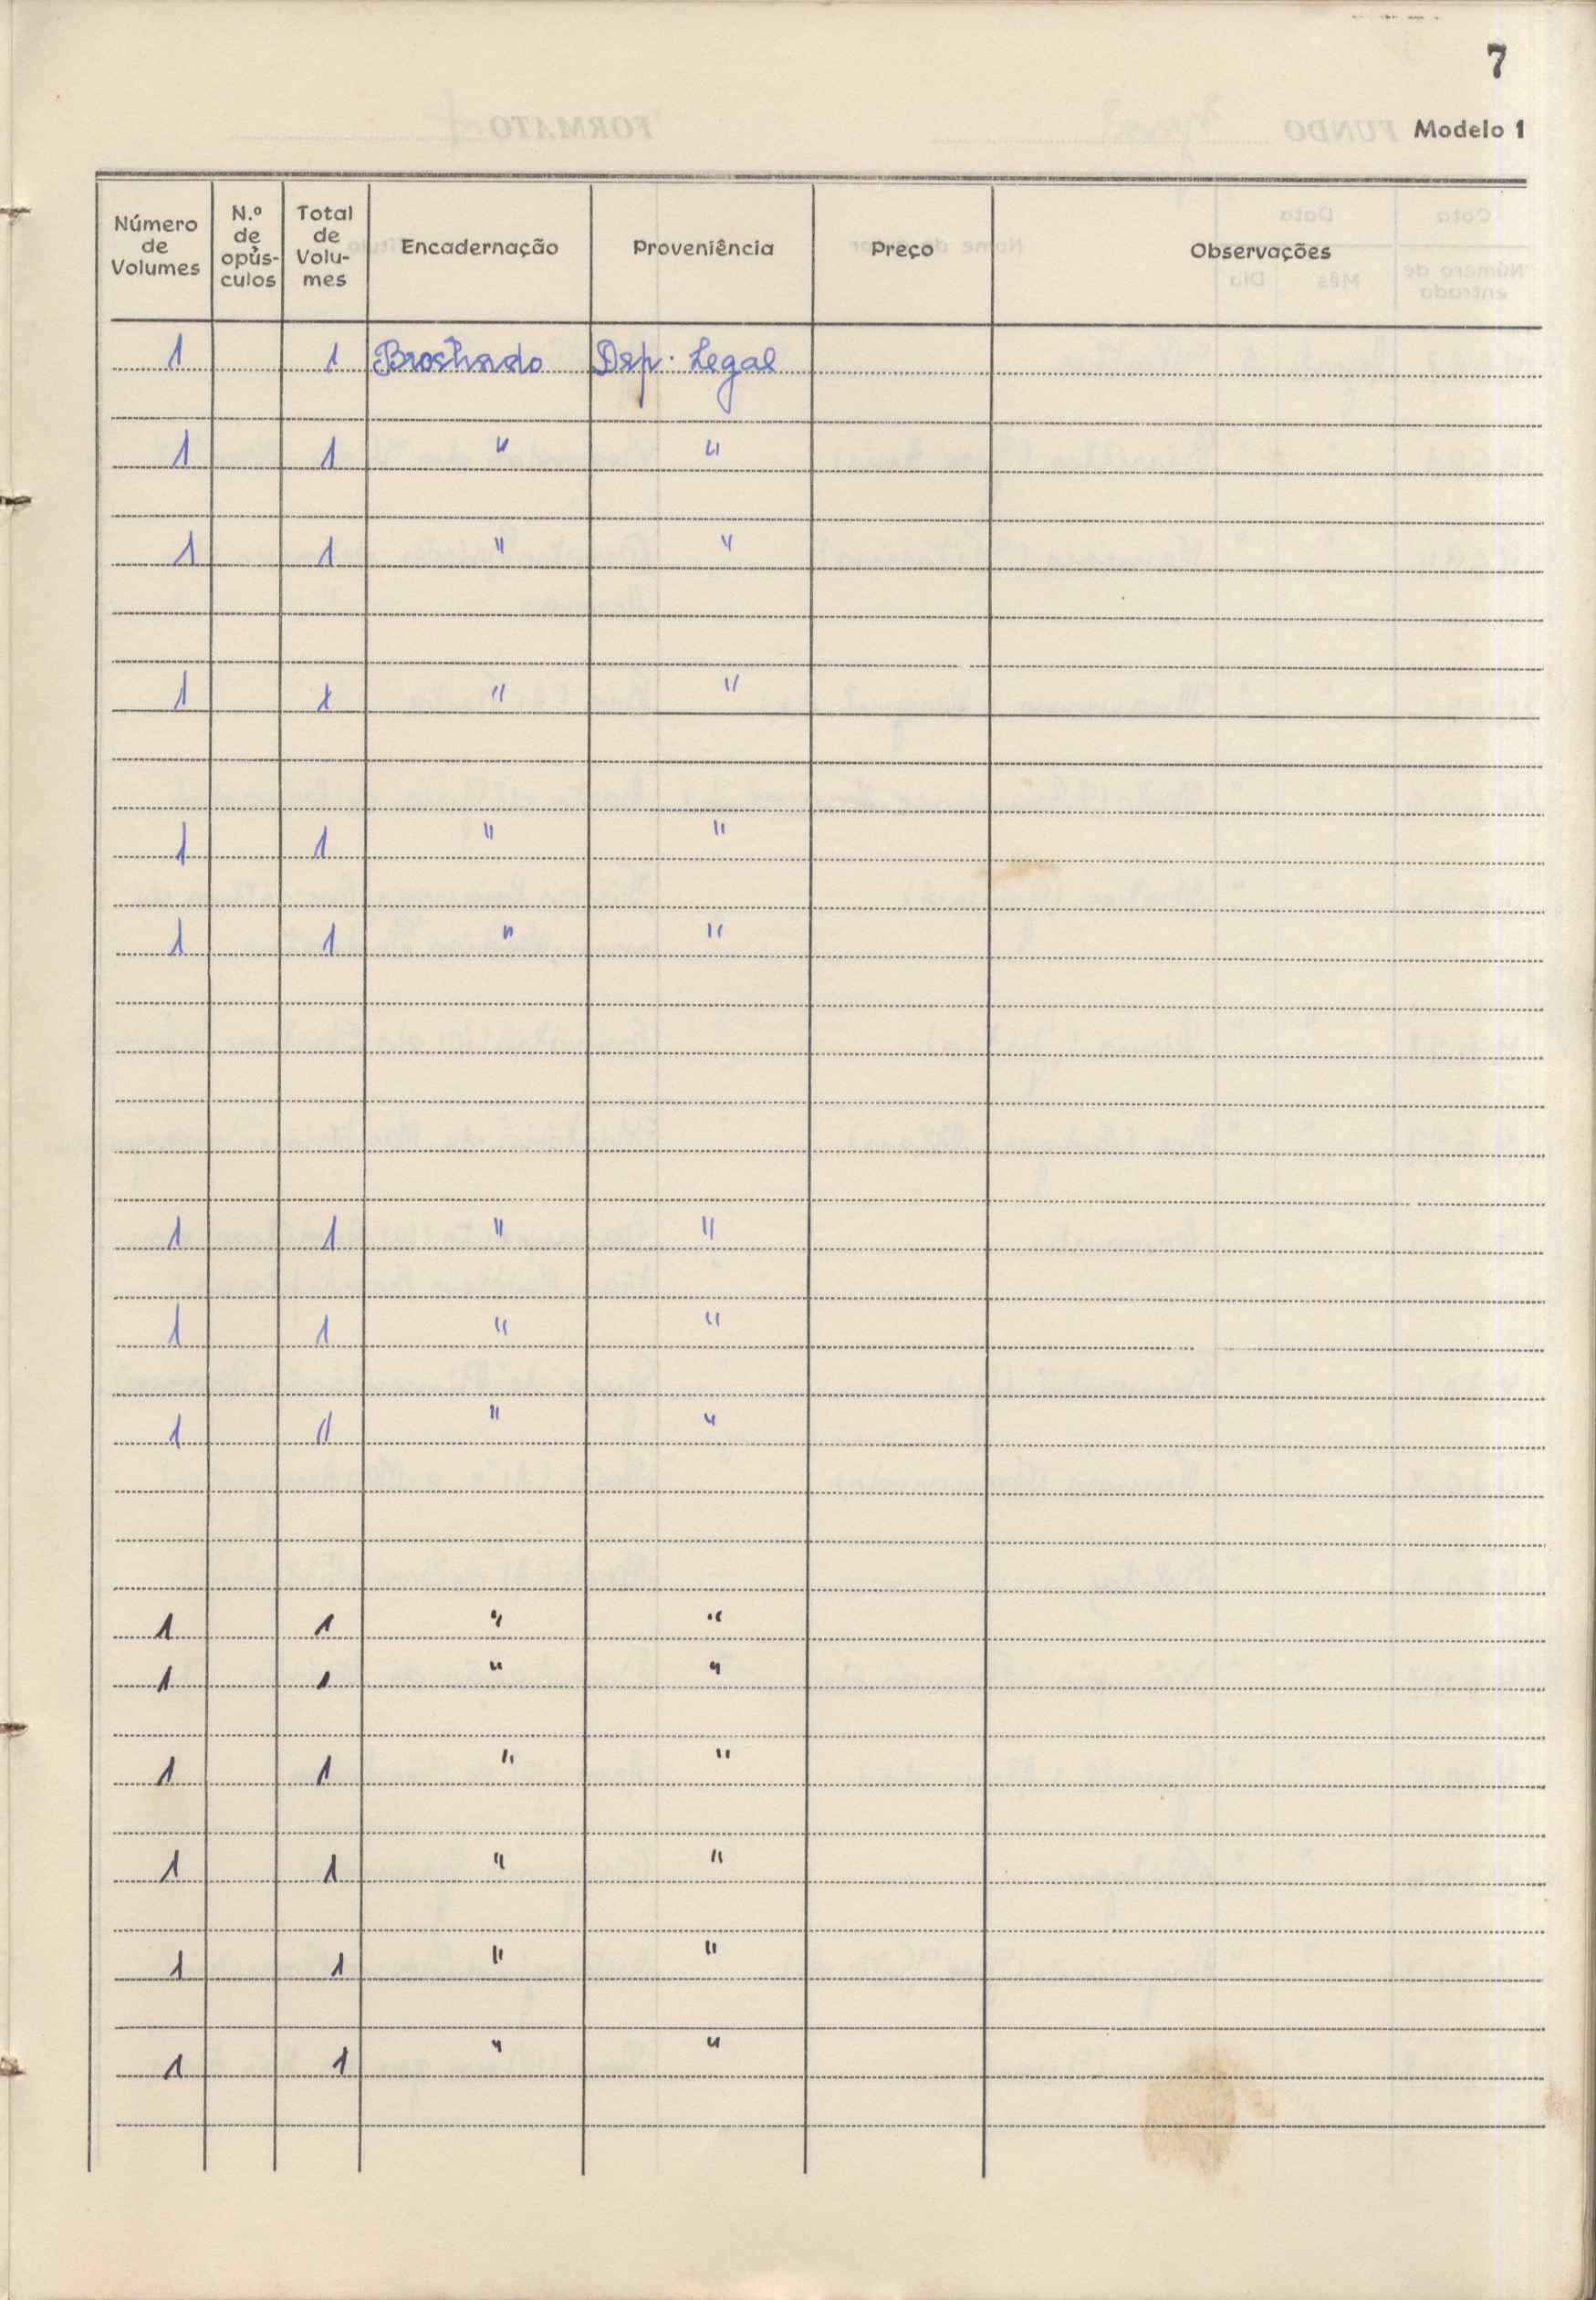 7
Modelo 1
Número de Volumes | N.º de opús-culos | Total de Volu-mes | Encadernação | Proveniência | Preço | Observações
1 | | 1 | Brochado | Dep. Legal
1 | | 1 | " | "
1 | | 1 | " | "
1 | | 1 | " | "
1 | | 1 | " | "
1 | | 1 | " | "
1 | | 1 | " | "
1 | | 1 | " | "
1 | | 1 | " | "
1 | | 1 | " | "
1 | | 1 | " | "
1 | | 1 | " | "
1 | | 1 | " | "
1 | | 1 | " | "
1 | | 1 | " | "